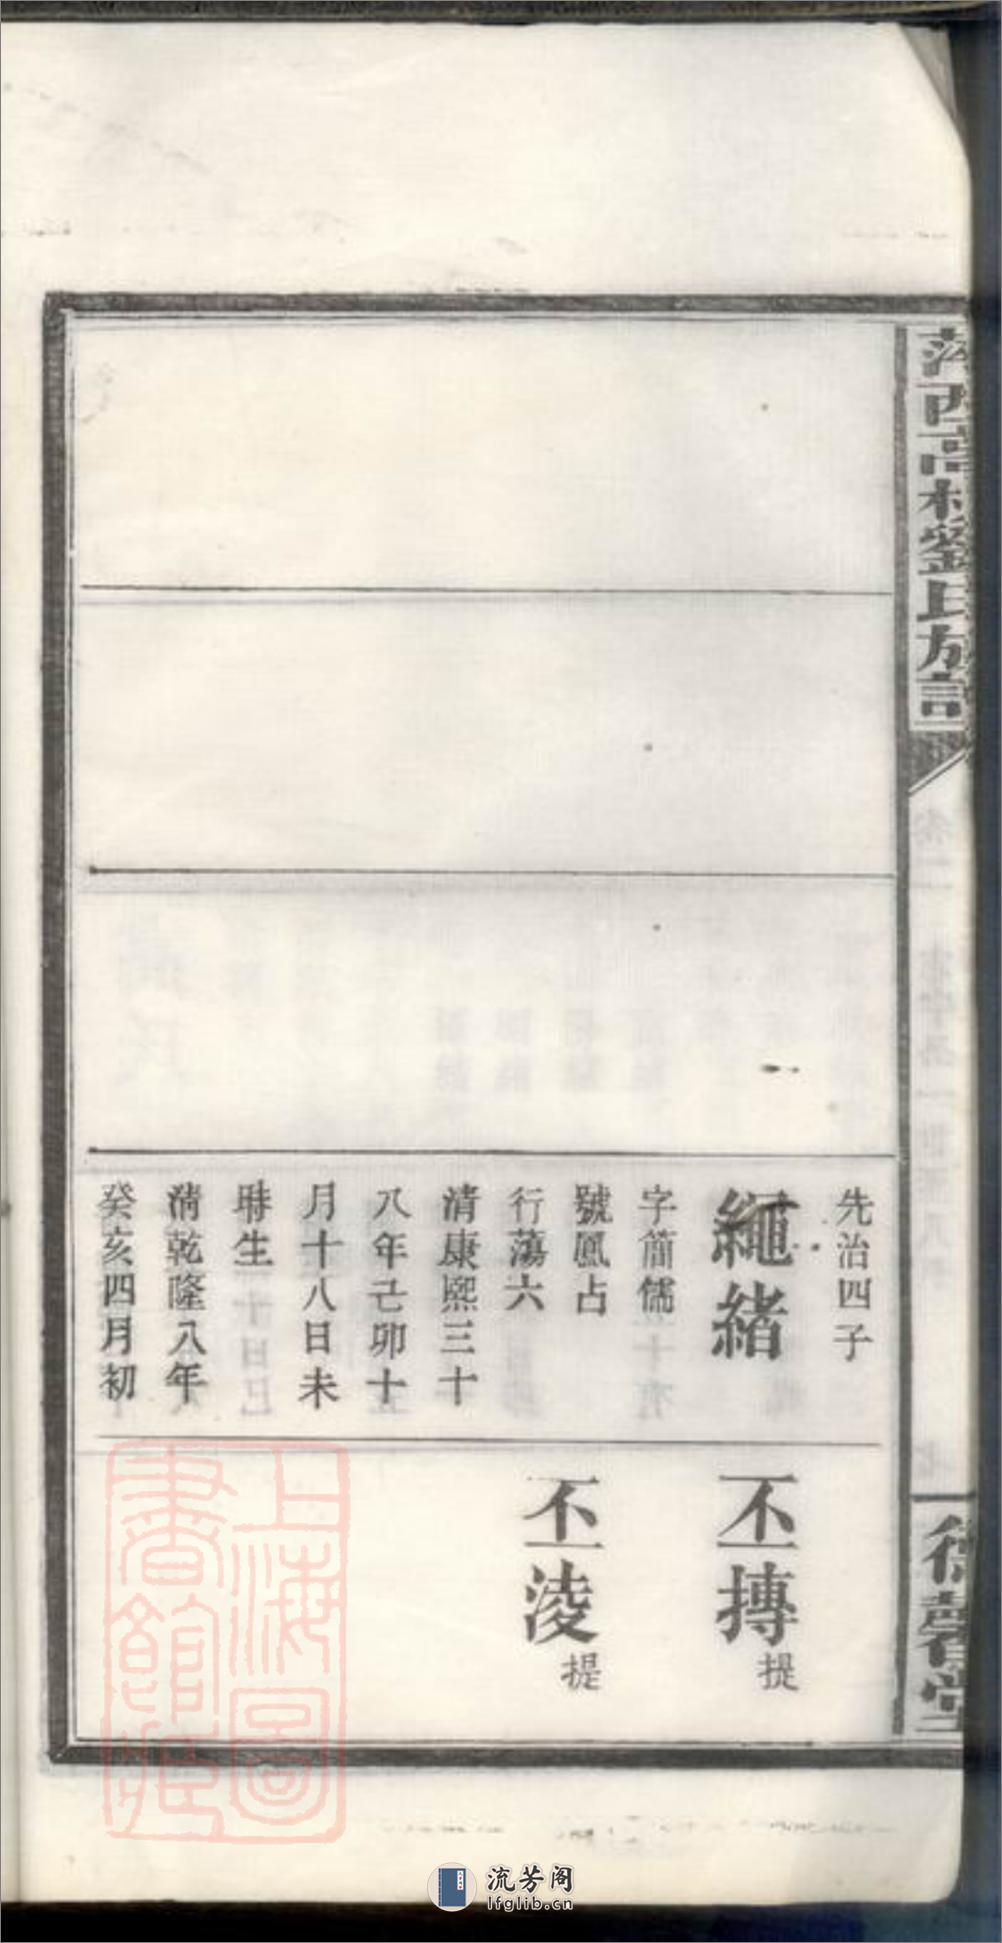 萍西高村劉氏族譜
卷二
德馨堂
先治四子
繩緒
字簡儒
號鳳占
行蕩六
清康熙三十
八年己卯十
月十八日未
時生
清乾隆八年
癸亥四月初
丕摶提
丕淩提
上海圖
書館藏
流芳阁
lfglib.cn